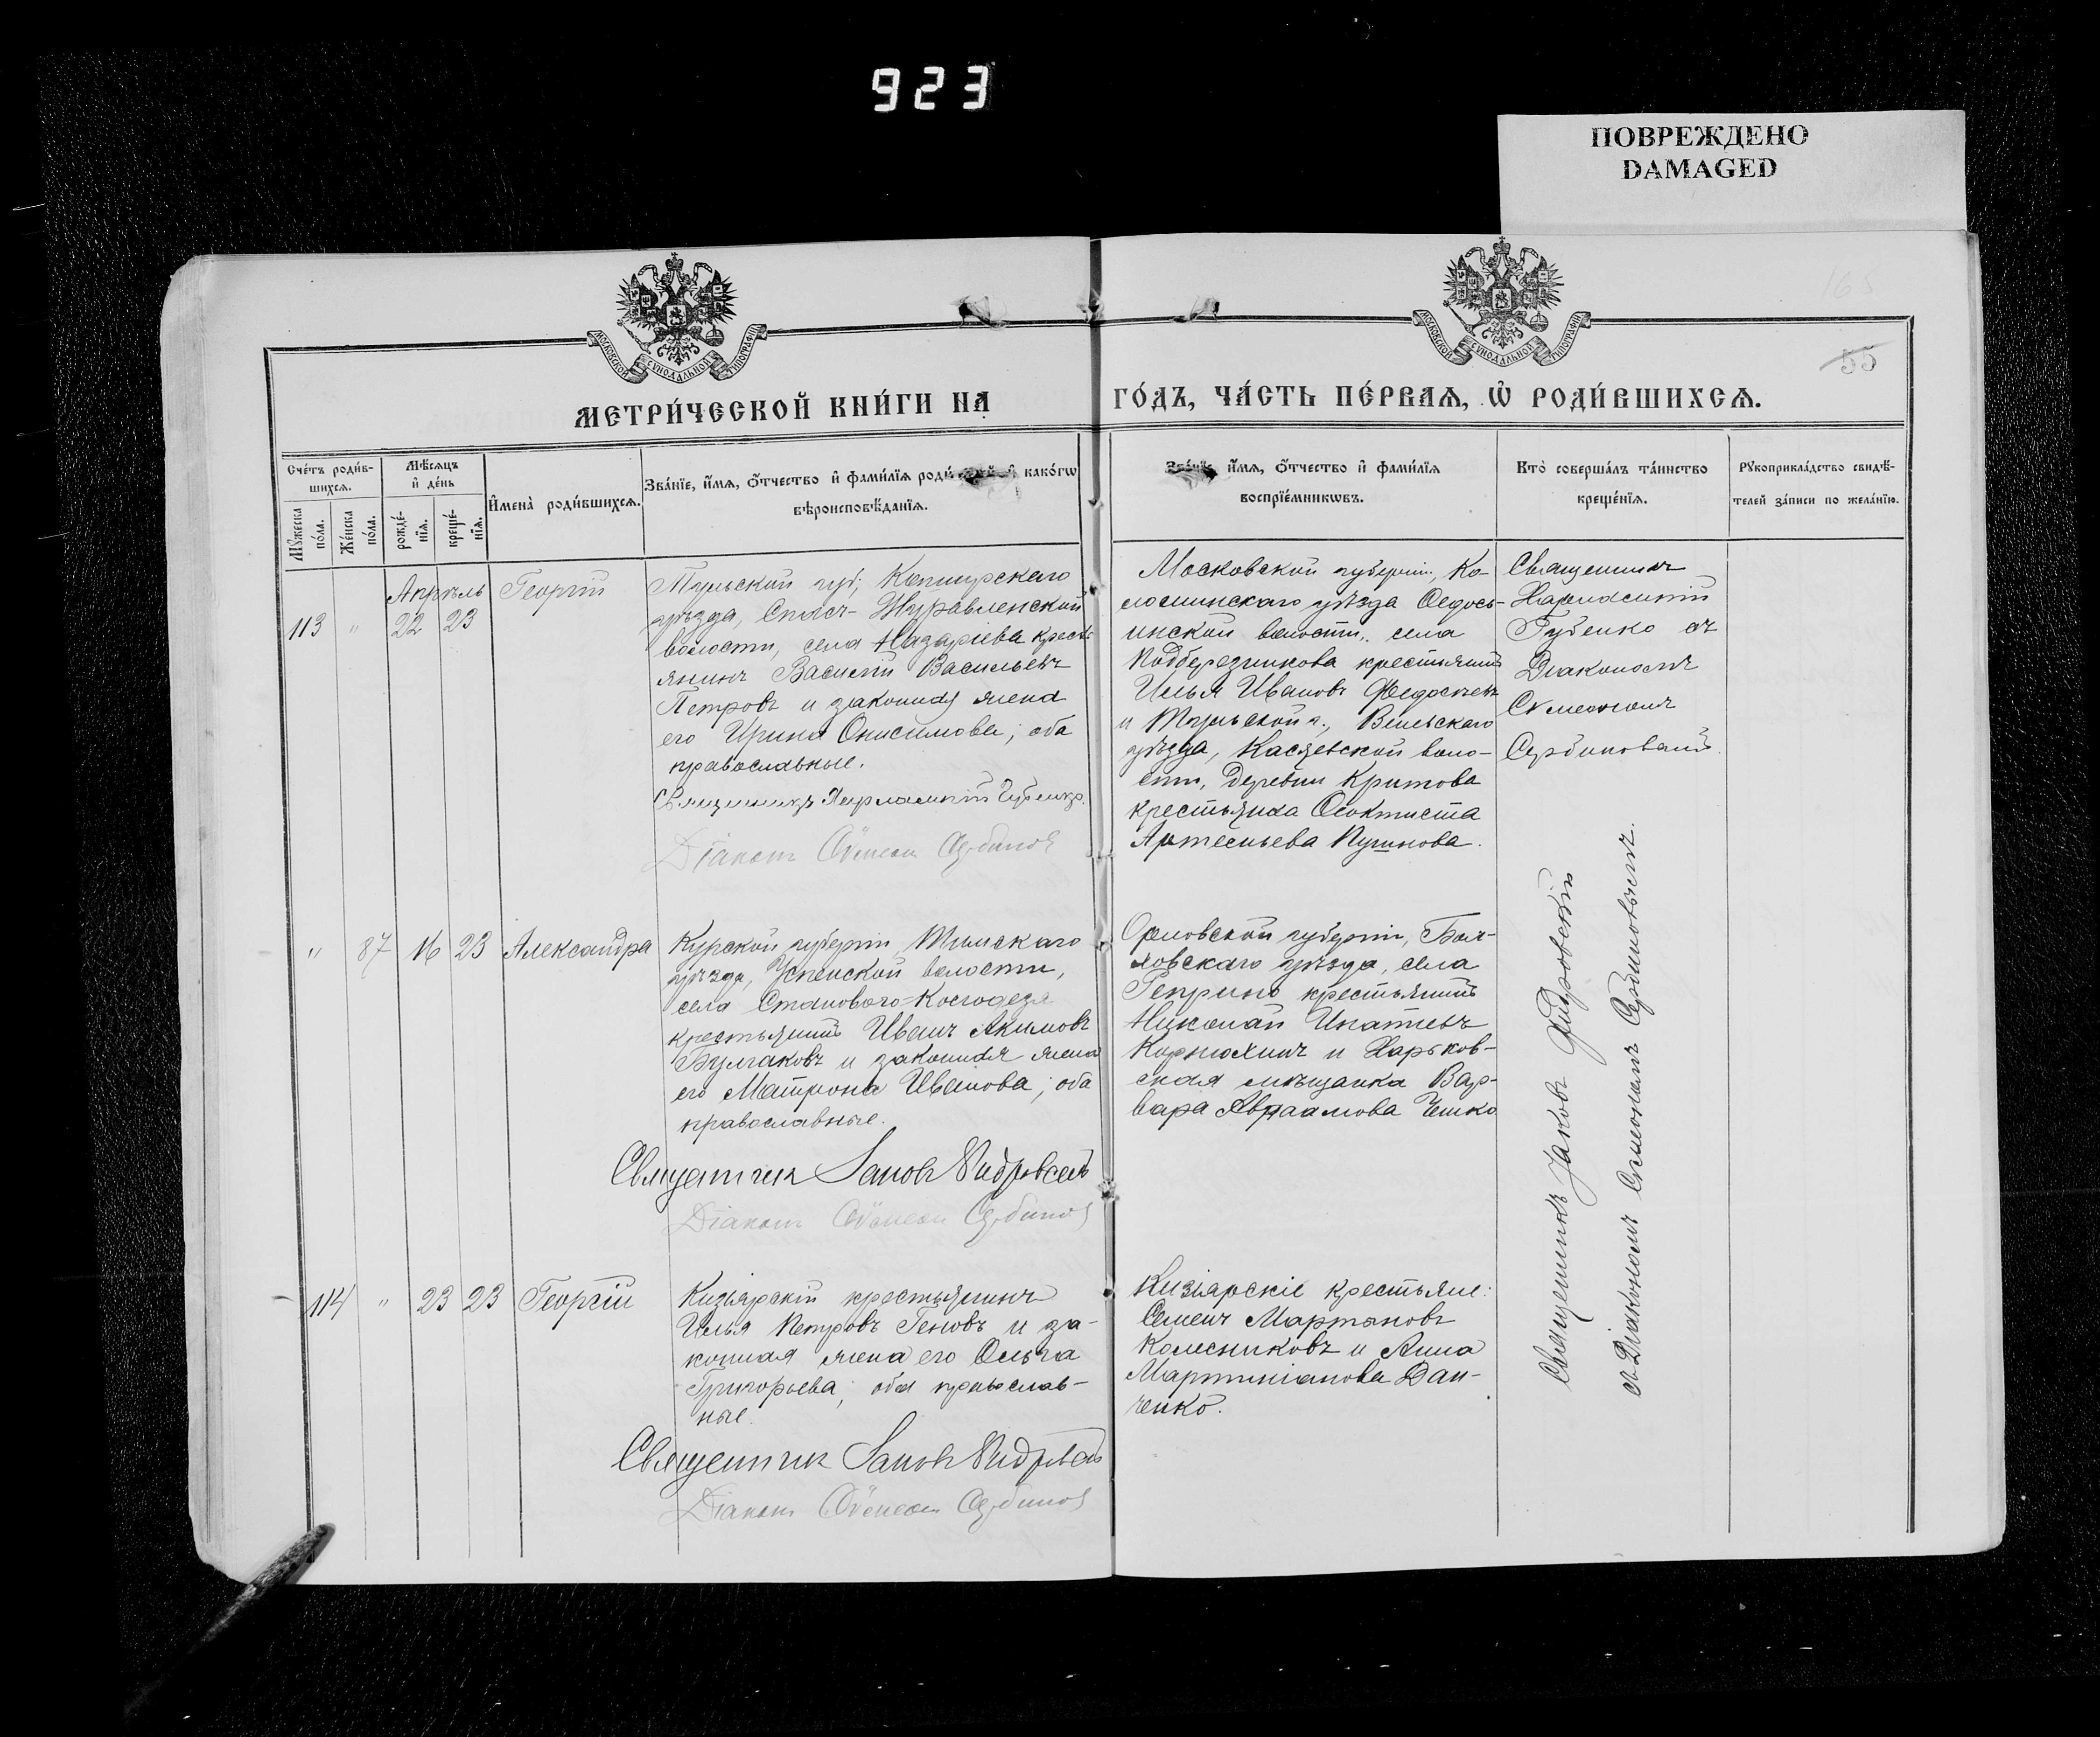 923
ПОВРЕЖДЕНО
DAMAGED
165
55
МОСКОВСКОЙ СѴНОДАЛЬНОЙ ТИПОГРАФІИ
МОСКОВСКОЙ СѴНОДАЛЬНОЙ ТИПОГРАФІИ
МЕТРИ́ЧЕСКОЙ КНИ́ГИ НА
ГО́ДЪ, ЧА́СТЬ ПЕ́РВАѦ, Ѿ РОДИ́ВШИХСѦ.
Сче́тъ роди́в-
шихсѧ.
Мꙋ́жеска по́ла.
Же́нска по́ла.
Мѣ́сѧцъ и҆ де́нь
рожде́-
нїѧ.
креще́-
нїѧ.
И҆мена̀ роди́вшихсѧ.
Зва́нїе, и҆́мѧ, ѻ҆́тчество и҆ фами́лїѧ роди́ и҆ како́гѡ
вѣроисповѣ́данїѧ.
Зва́нїе, и҆́мѧ, ѻ҆́тчество и҆ фами́лїѧ
воспрїе́мникѡвъ.
Кто̀ соверша́лъ та́инство
креще́нїѧ.
Рꙋкоприкла́дство свидѣ́-
телей за́писи по жела́нїю.
Апрѣль
113 " 22 23
Георгій
Тульской губ; Каширскаго
уѣзда, Спасъ-Журавленской
волости, села Назаріева кресть
янинъ Василій Васильевъ
Петровъ и законная жена
его Ирина Онисимова; оба
православные.
Священникъ Харлампій Губенко.
Діаконъ Сѵмеонъ Сербиновъ
Московской губерніи, Ко-
ломинскаго уѣзда Федось-
инской волости, села
Подберезникова крестьянинъ
Илья Ивановъ Федосѣевъ
и Тульской г., Веневскаго
уѣзда, Касяевской воло-
сти, деревни Критова
крестьянка Феоктиста
Артемьева Пушнова.
Священникъ
Харлампій
Губенко съ
Діакономъ
Сѵмеономъ
Сербиновымъ.
" 87 16 23 Александра
Курской губерніи, Тимскаго
уѣзда, Успенской волости,
села Становаго-Колодезя
крестьянинъ Иванъ Акимовъ
Булгаковъ и законная жена
его Матрона Иванова; оба
православные.
Священник Яковъ
Діаконъ Сѵмеонъ Сербиновъ
Орловской губерніи, Бол-
ховскаго уѣзда, села
Реприно крестьянинъ
Николай Игнатіевъ
Корнюхинъ и Харьков-
ская мѣщанка Вар-
вара Авраамова Чешко
Священникъ Іаковъ
съ Діакономъ Сѵмеономъ Сербиновымъ.
114 " 23 23 Георгій
Кизіярскій крестьянинъ
Илья Петровъ Геновъ и за-
конная жена его Ольга
Григорьева; оба православ-
ные.
Священник Яковъ
Діаконъ Сѵмеонъ Сербиновъ
Кизіярскіе крестьяне:
Семенъ Мартыновъ
Колесниковъ и Анна
Мартиніанова Дан-
ченко.